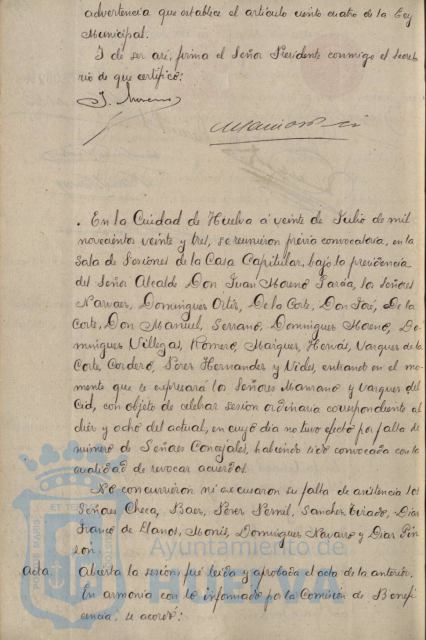 advertencia que establece el artículo ciento cuatro de la Ley
Municipal.
I de ser así, firma el Señor Presidente conmigo el Secreta-
rio de que certifico:
J. Moreno
. En la Ciudad de Huelva á veinte de Julio de mil
novecientos veinte y tres, se reunieron prévia convocatoria, en la
Sala de Sesiones de la Casa Capitular, bajo la presidencia
del Señor Alcalde Don Juan Moreno García, los Señores
Narvaez, Dominguez Ortiz, De la Corte, Don José, De la
Corte, Don Manuel, Serrano, Dominguez Moreno, Do-
minguez Villegas, Romero, Maiquez, Hervás, Vazquez de la
Corte, Cordero, Perez Hernandez y Vides, entrando en el mo-
mento que se expresará los Señores Manzano y Vazquez del
Cid, con objeto de celebrar sesión ordinaria correspondiente al
diez y ocho del actual, en cuyo dia no tuvo efecto por falta de
número de Señores Concejales, habiendo sido convocada con la
cualidad de revocar acuerdos.
No concurrieron ni excusaron su falta de asistencia los
Señores Checa, Baez, Perez Pernil, Sanchez Tirado, Diaz
Franco de Llanos, Monís, Dominguez Navarro y Diaz Pin-
zón.
Acta. Abierta la sesión fué leida y aprobada el acta de la anterior.
En armonía con lo informado por la Comisión de Benefi-
cencia, se acordó:
Ayuntamiento de
HUELVA